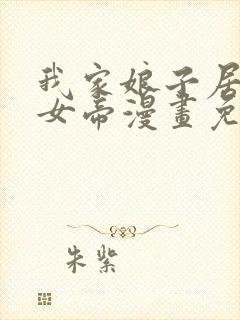 我家娘子居
女帝漫畫免
朱紫